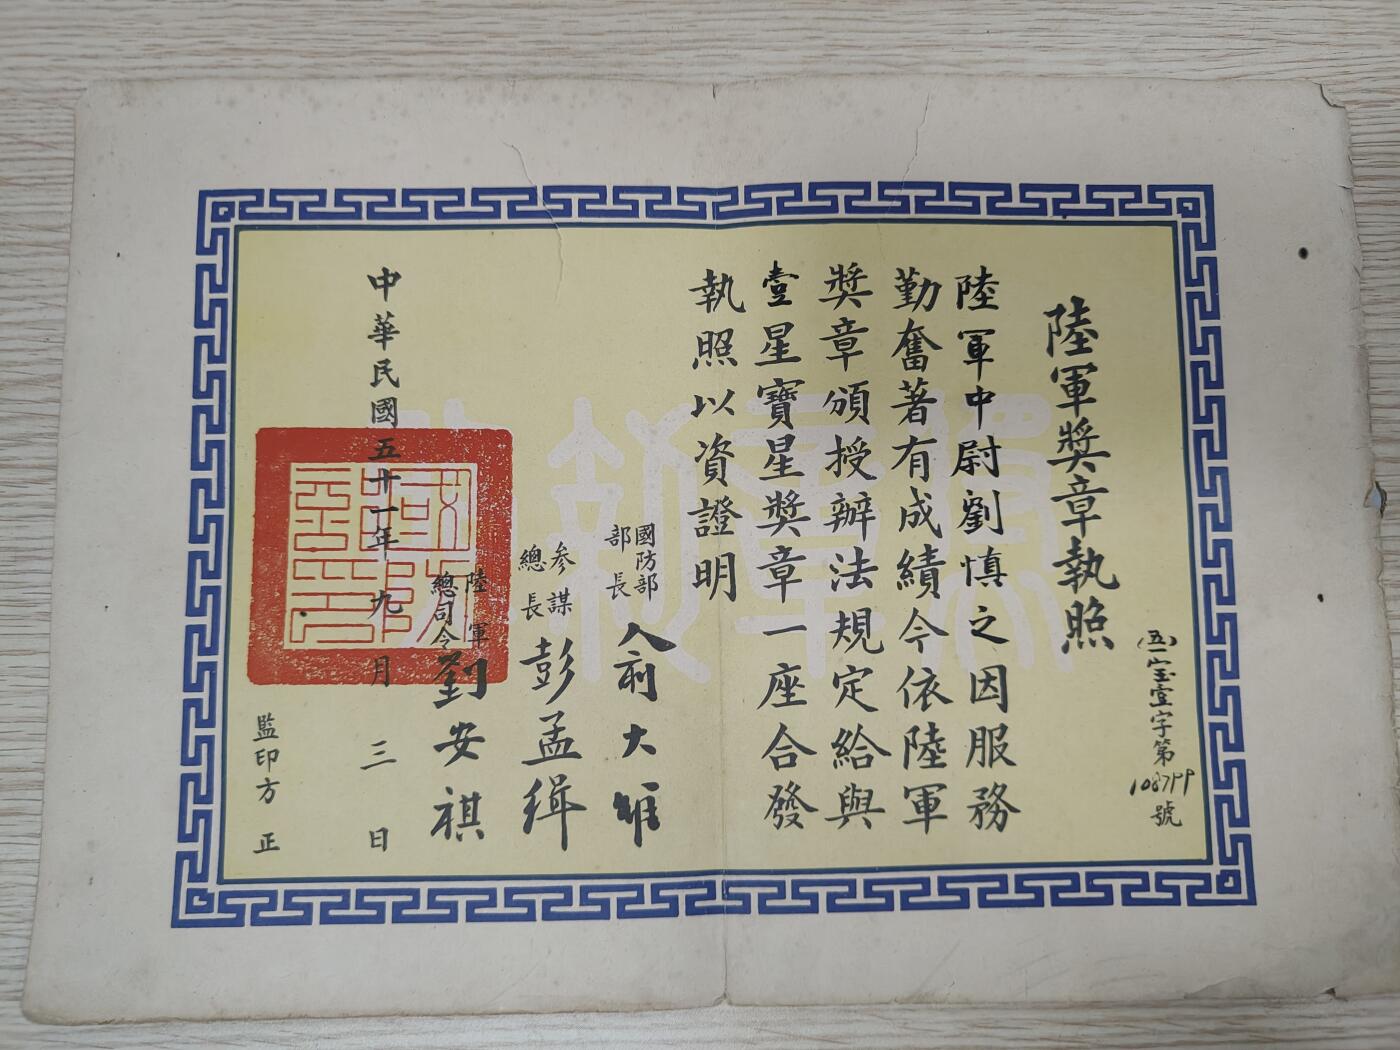 陸軍獎章執照
(五一)宝壹字第108799號
陸軍中尉劉慎之因服務
勤奮著有成績今依陸軍
獎章頒授辦法規定給與
壹星寶星獎章一座合發
執照以資證明
國防部
部長 俞大維
參謀
總長 彭孟緝
陸軍
總司令 劉安祺
中華民國五十一年九月三日
監印方正